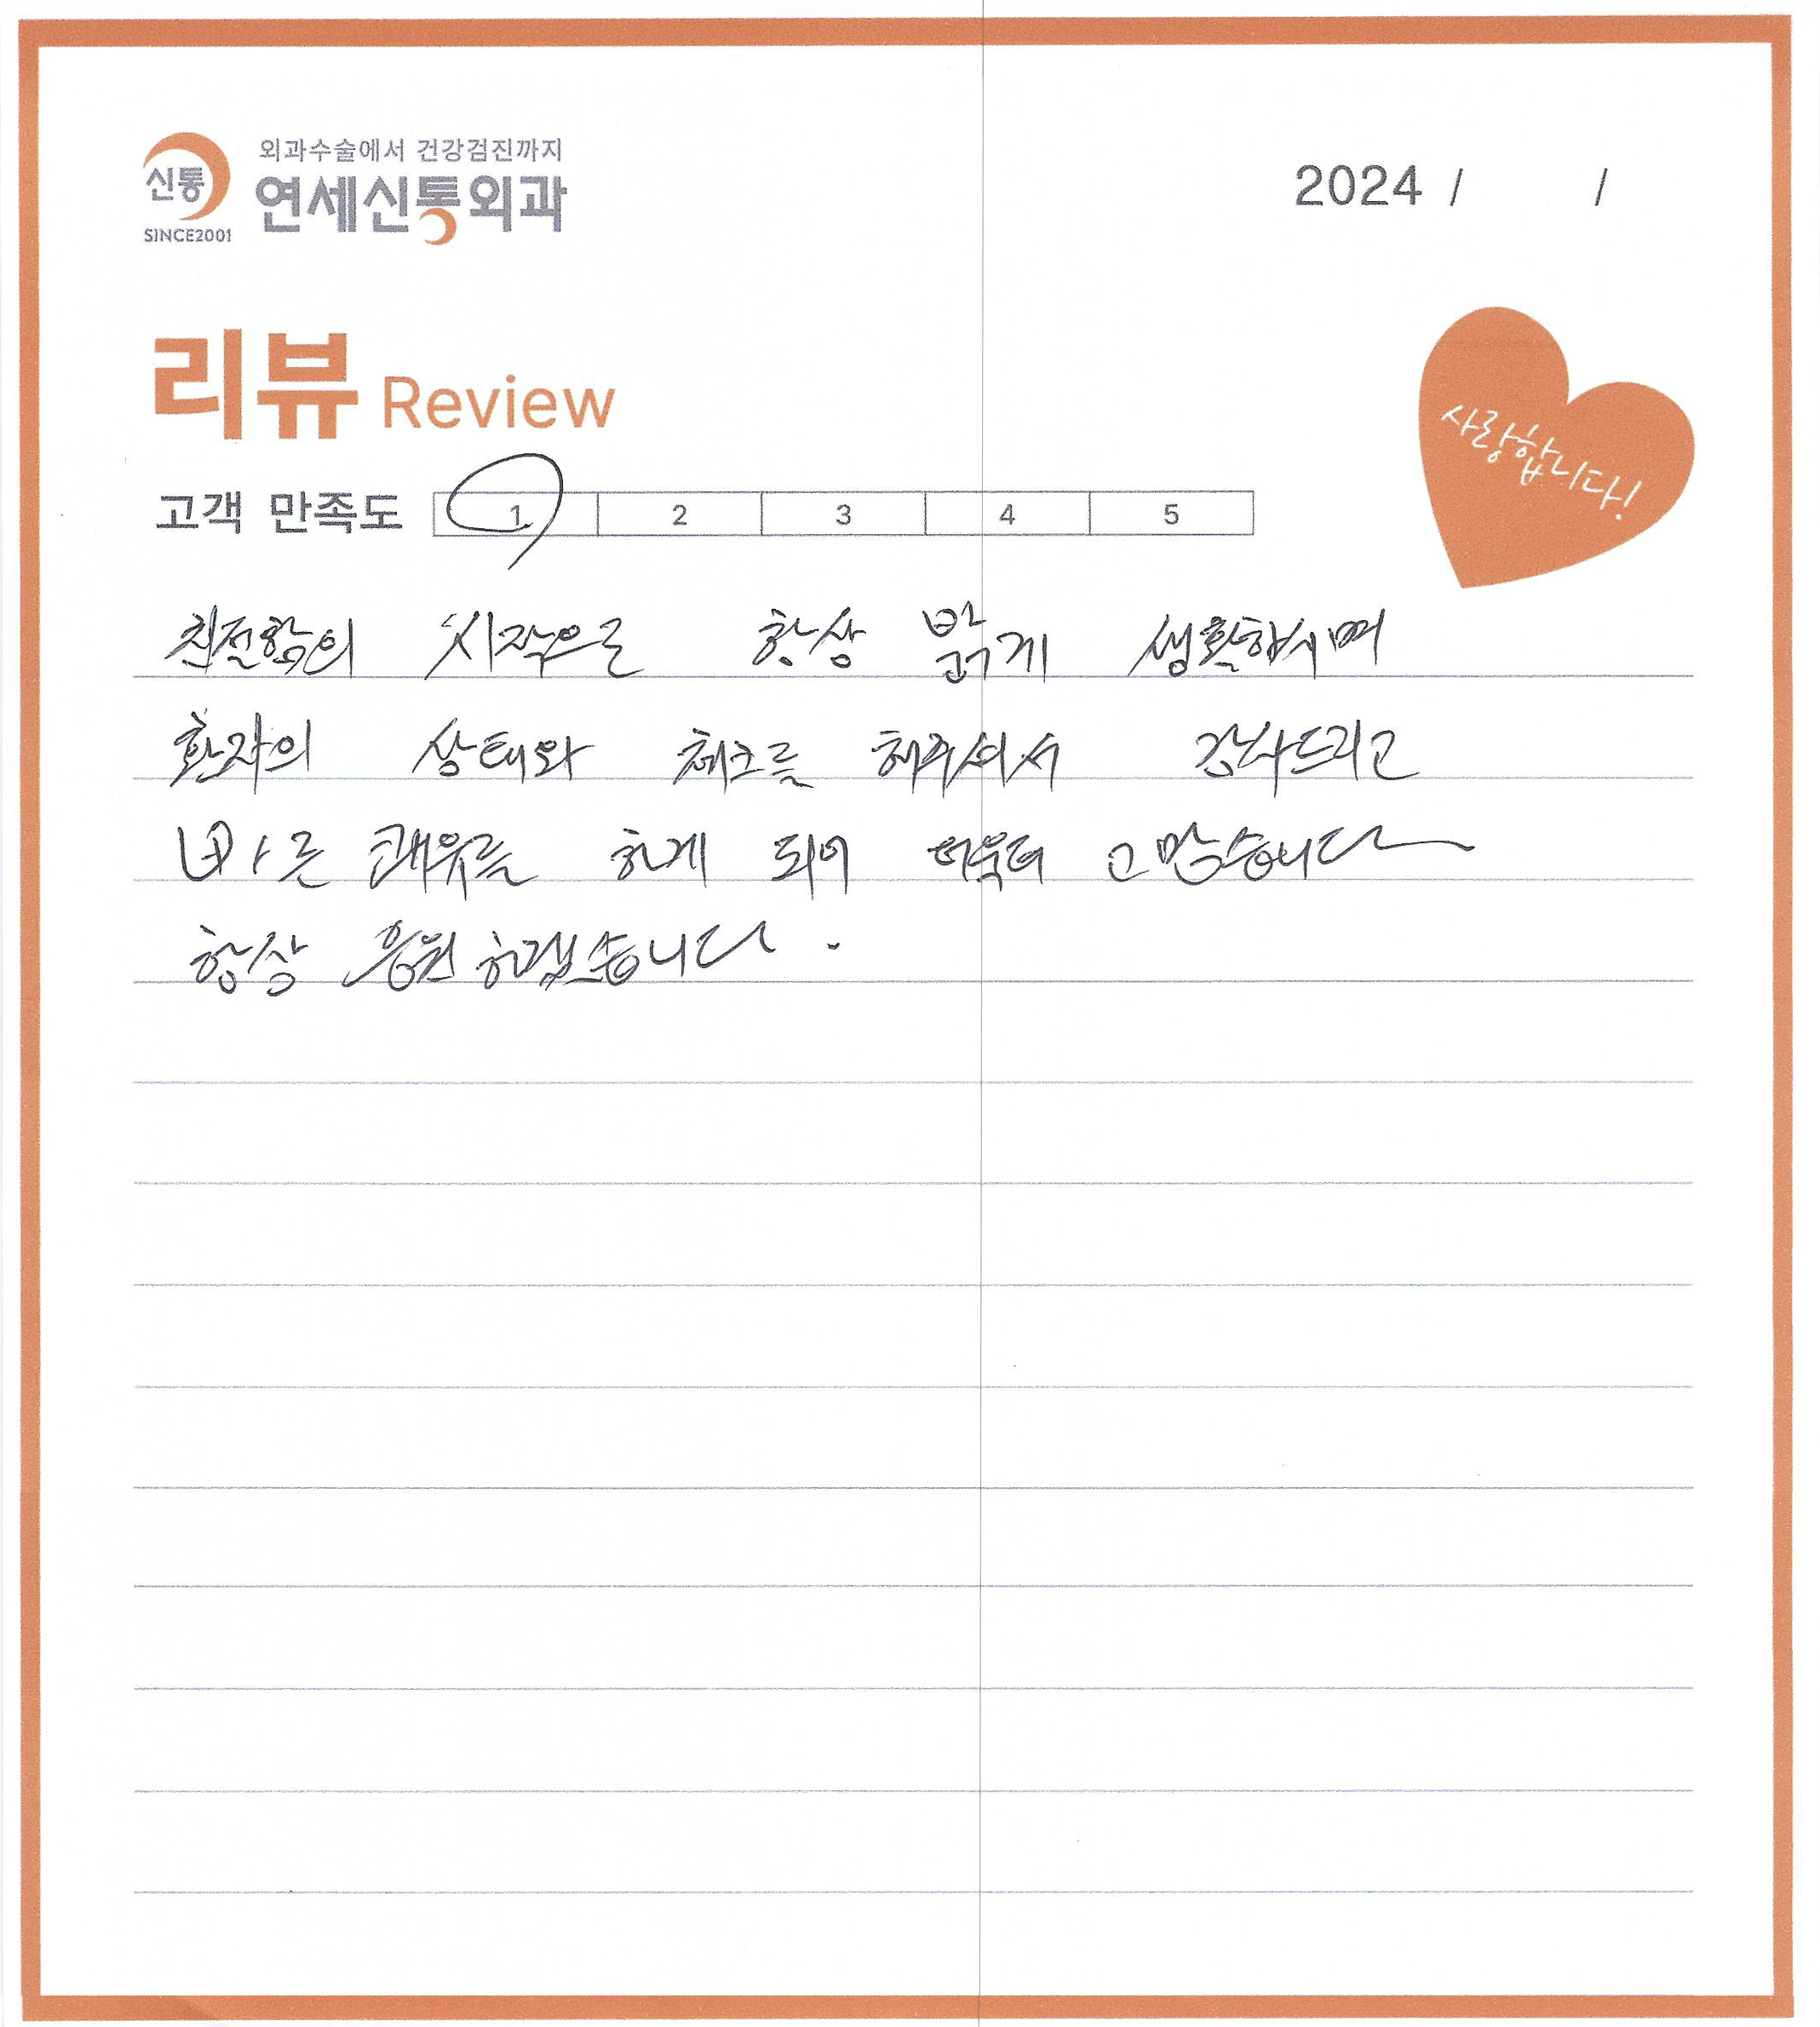 신통
SINCE2001
외과수술에서 건강검진까지
연세신통외과
2024 / /
리뷰 Review
사랑합니다!
고객 만족도 1 2 3 4 5
친절함의 시작으로 항상 밝게 생활하시며
환자의 상태와 체크를 해주셔서 감사드리고
빠른 쾌유를 하게 되어 더욱더 고맙습니다
항상 응원하겠습니다.